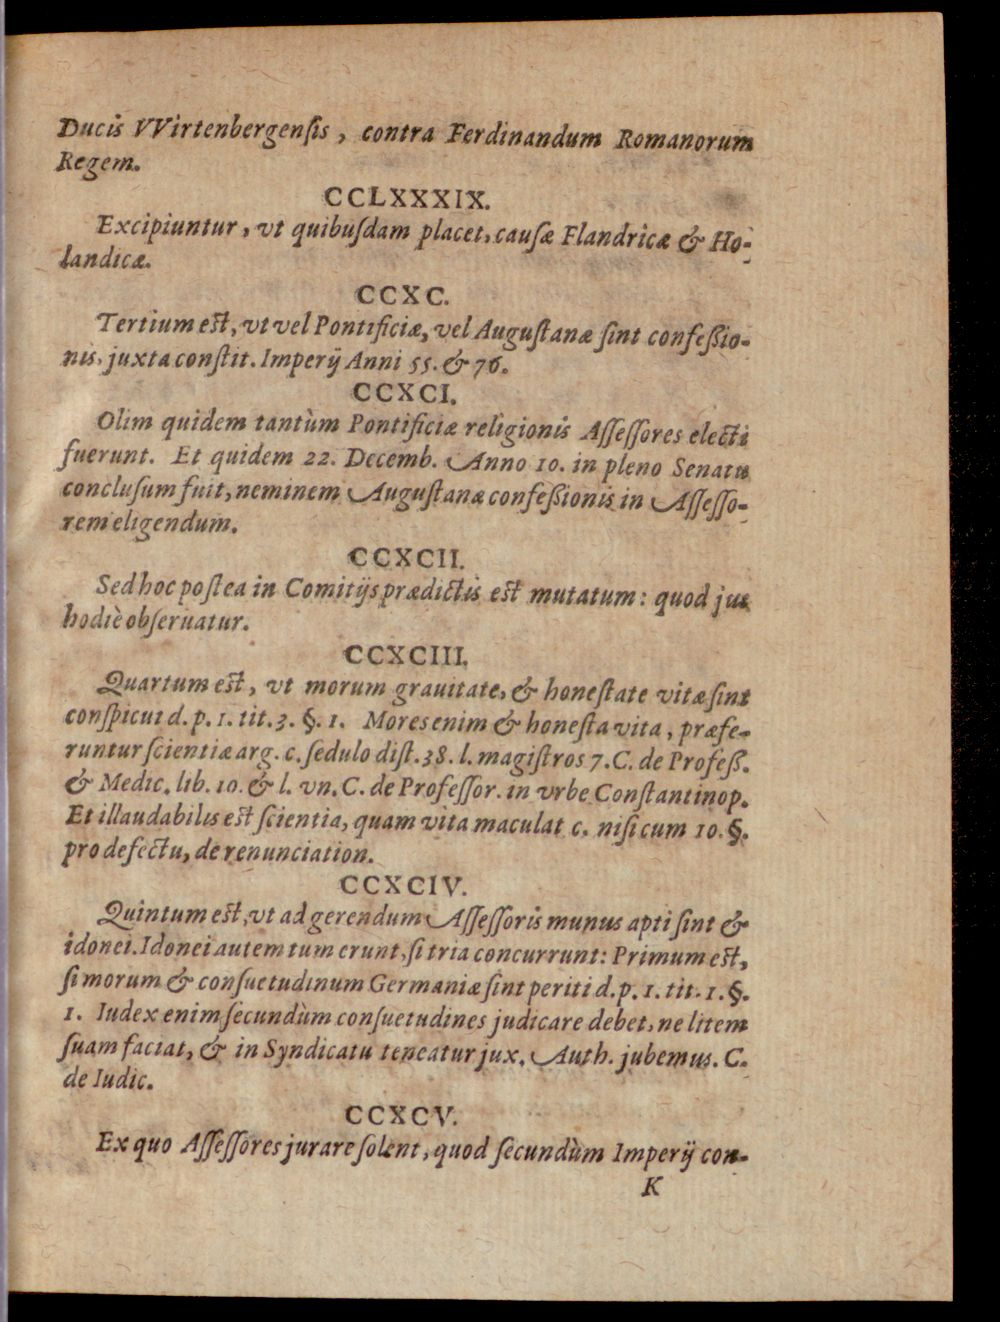 Ducis VVirtenbergenſis, contra Ferdinandum Romanorum
Regem.
CCLXXXIX.
Excipiuntur, vt quibuſdam placet, cauſæ Flandricæ & Ho-
landicæ.
CCXC.
Tertium est, vt vel Pontificiæ, vel Auguſtanæ ſint confeßio-
nis, juxta conſtit. Imperij Anni 55. & 76.
CCXCI.
Olim quidem tantùm Pontificiæ religionis Aſſeſſores electi
fuerunt. Et quidem 22. Decemb. Anno 10. in pleno Senatu
concluſum fuit, neminem Auguſtanæ confeßionis in Aſſeſſo-
rem eligendum.
CCXCII.
Sed hoc poſtea in Comitijs prædictis est mutatum: quod jus
hodiè obſeruatur.
CCXCIII.
Quartum est, vt morum grauitate, & honeſtate vitæ ſint
conſpicui d. p. 1. tit. 3. §. 1. Mores enim & honeſta vita, præfe-
runtur ſcientiæ arg. c. ſedulo diſt. 38. l. magiſtros 7. C. de Profeß.
& Medic. lib. 10. & l. vn. C. de Profeſſor. in vrbe Conſtantinop.
Et illaudabilis est ſcientia, quam vita maculat c. niſi cum 10. §.
pro defectu, de renunciation.
CCXCIV.
Quintum est, vt ad gerendum Aſſeſſoris munus apti ſint &
idonei. Idonei autem tum erunt, ſi tria concurrunt: Primum est,
ſi morum & conſuetudinum Germaniæ ſint periti d. p. 1. tit. 1. §.
1. Iudex enim ſecundùm conſuetudines judicare debet, ne litem
ſuam faciat, & in Syndicatu teneatur jux. Auth. jubemus. C.
de Iudic.
CCXCV.
Ex quo Aſſeſſores jurare ſolent, quod ſecundùm Imperij con-
K